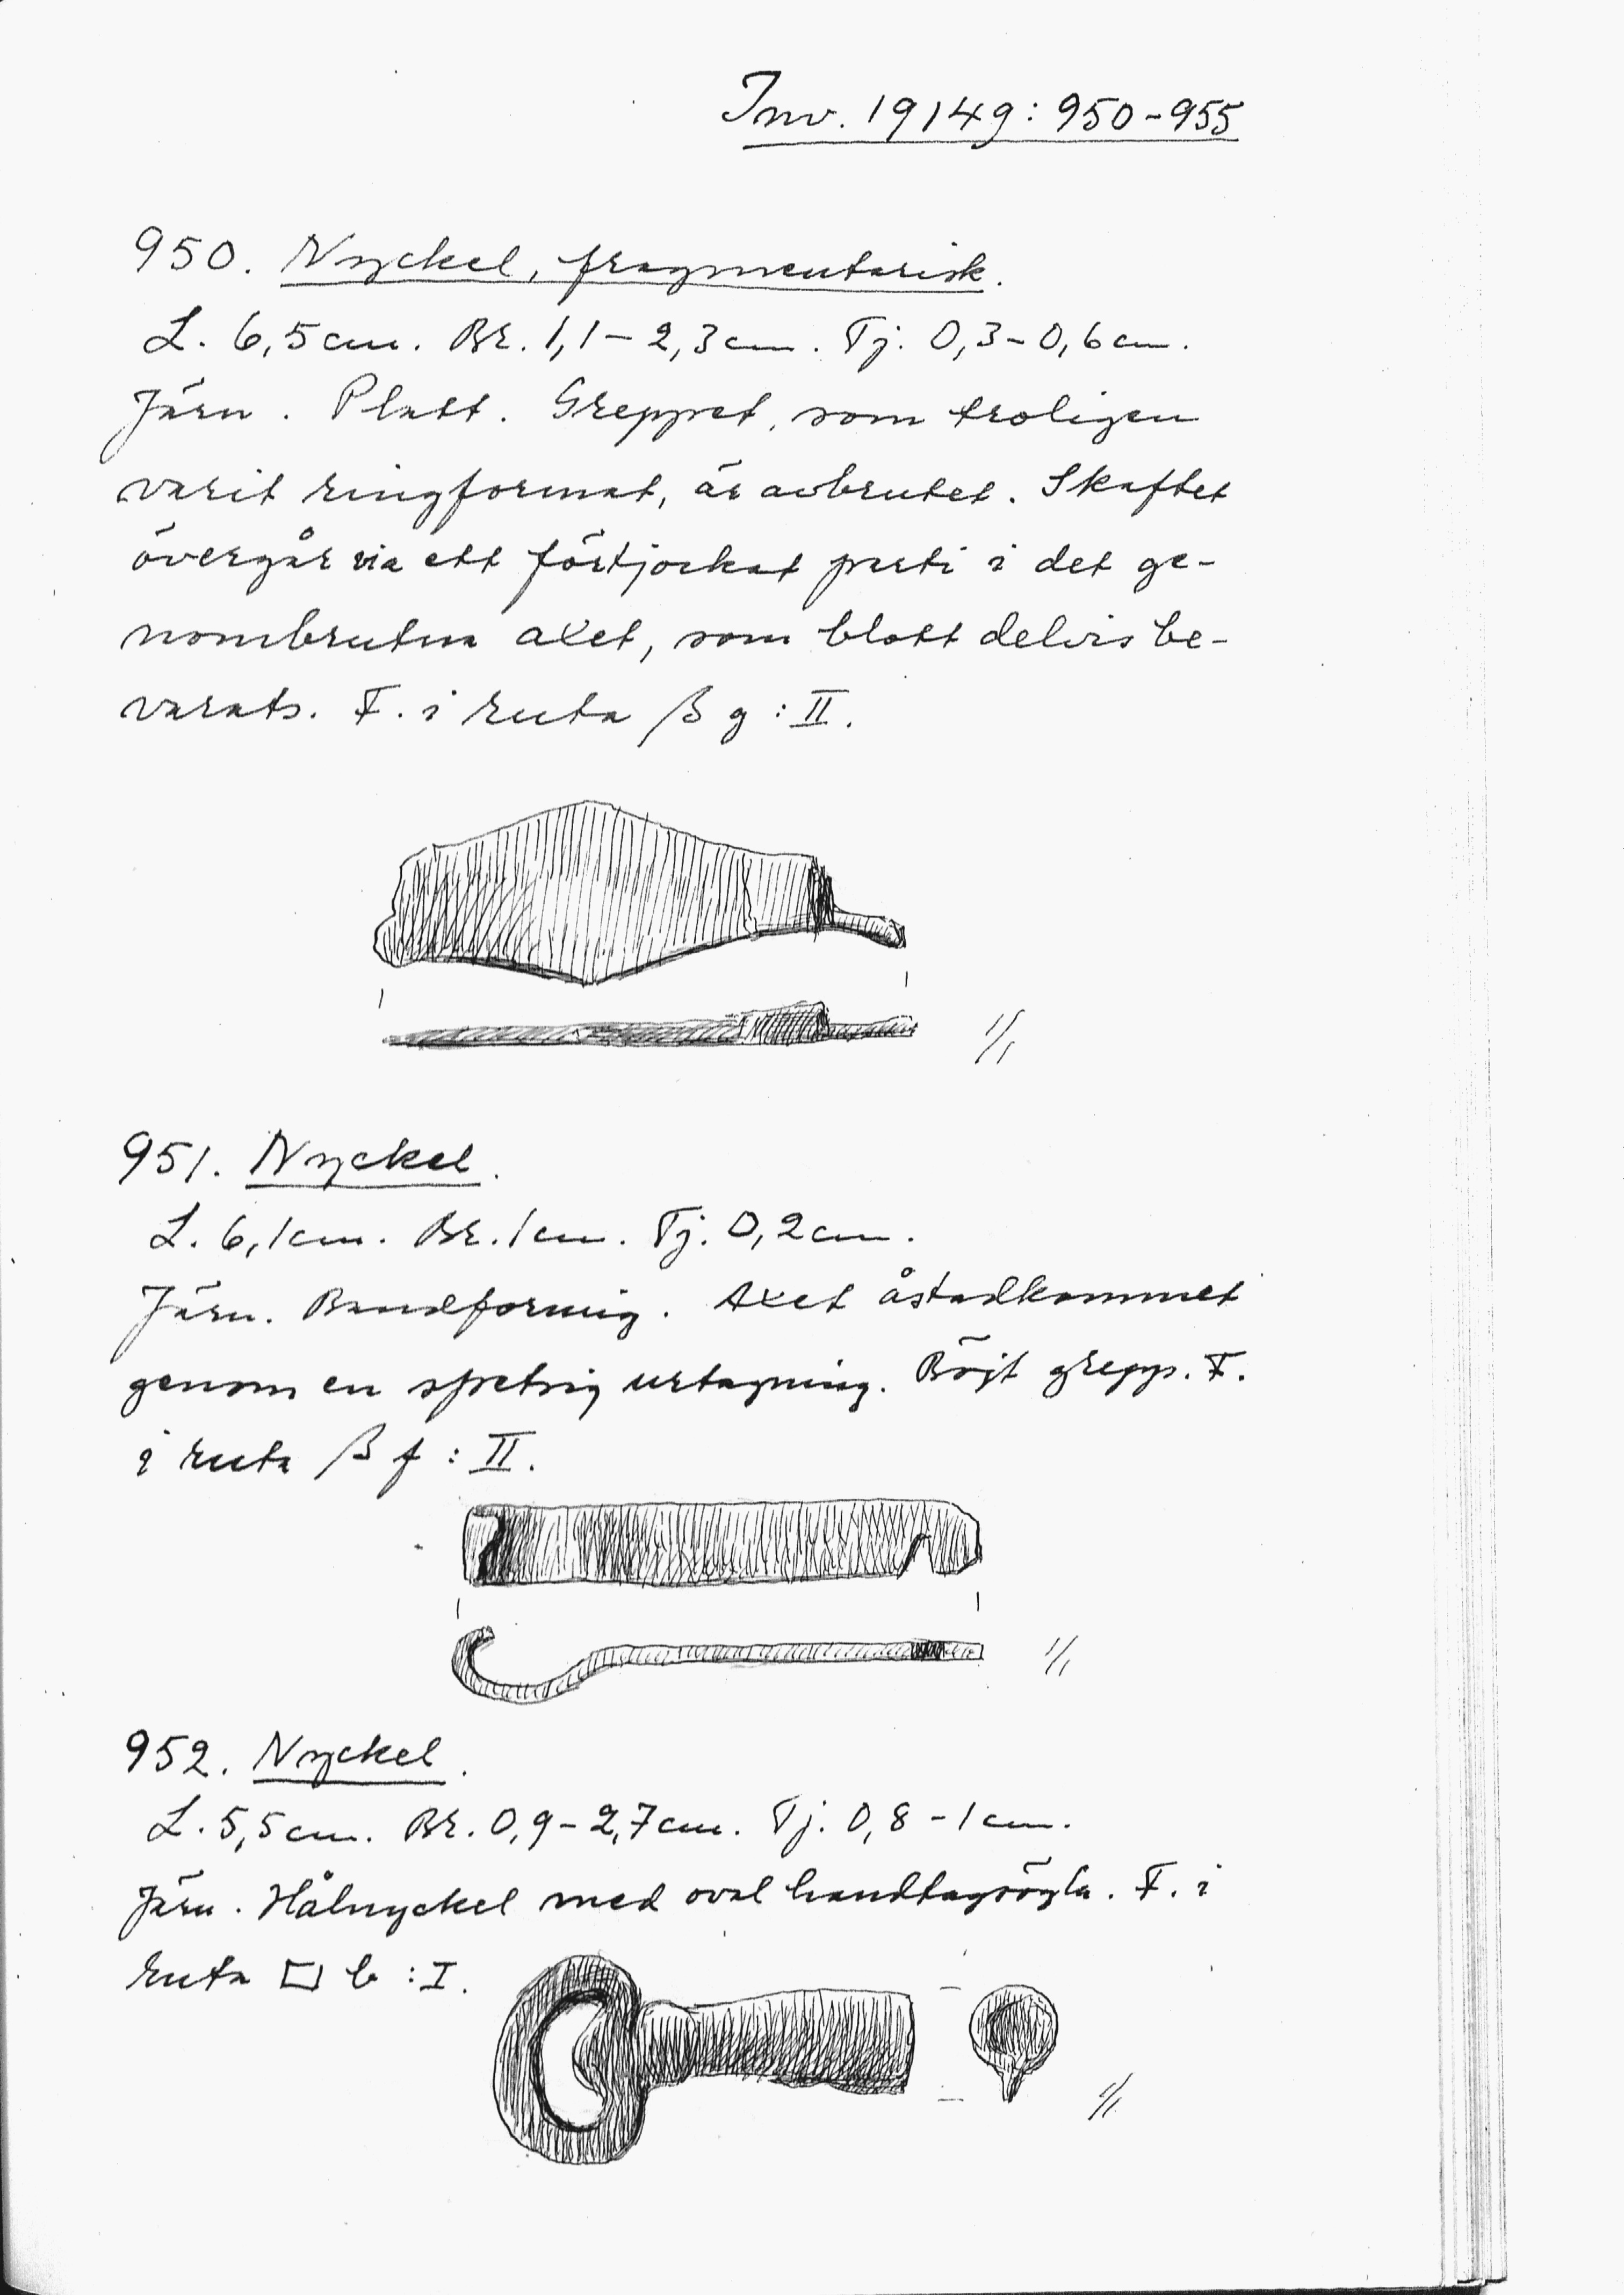 Inv. 19149: 950-955
950. Nyckel, fragmentarisk.
L. 6,5 cm. Br. 1,1-2,3 cm. Tj. 0,3-0,6 cm.
Järn. Platt. Greppet, som troligen
varit ringformat, är avbrutet. Skaftet
övergår via ett förtjockat parti i det ge-
nombrutna axet, som blott delvis be-
varats. F. i ruta β g : II.
1/1
951. Nyckel.
L. 6,1 cm. Br. 1 cm. Tj. 0,2 cm.
Järn. Bandformig. Axet åstadkommet
genom en spetsig urtagning. Böjt grepp. F.
i ruta β f : II.
1/1
952. Nyckel.
L. 5,5 cm. Br. 0,9-2,7 cm. Tj. 0,8-1 cm.
Järn. Hålnyckel med oval handtagsögla. F. i
ruta □ b : I.
1/1